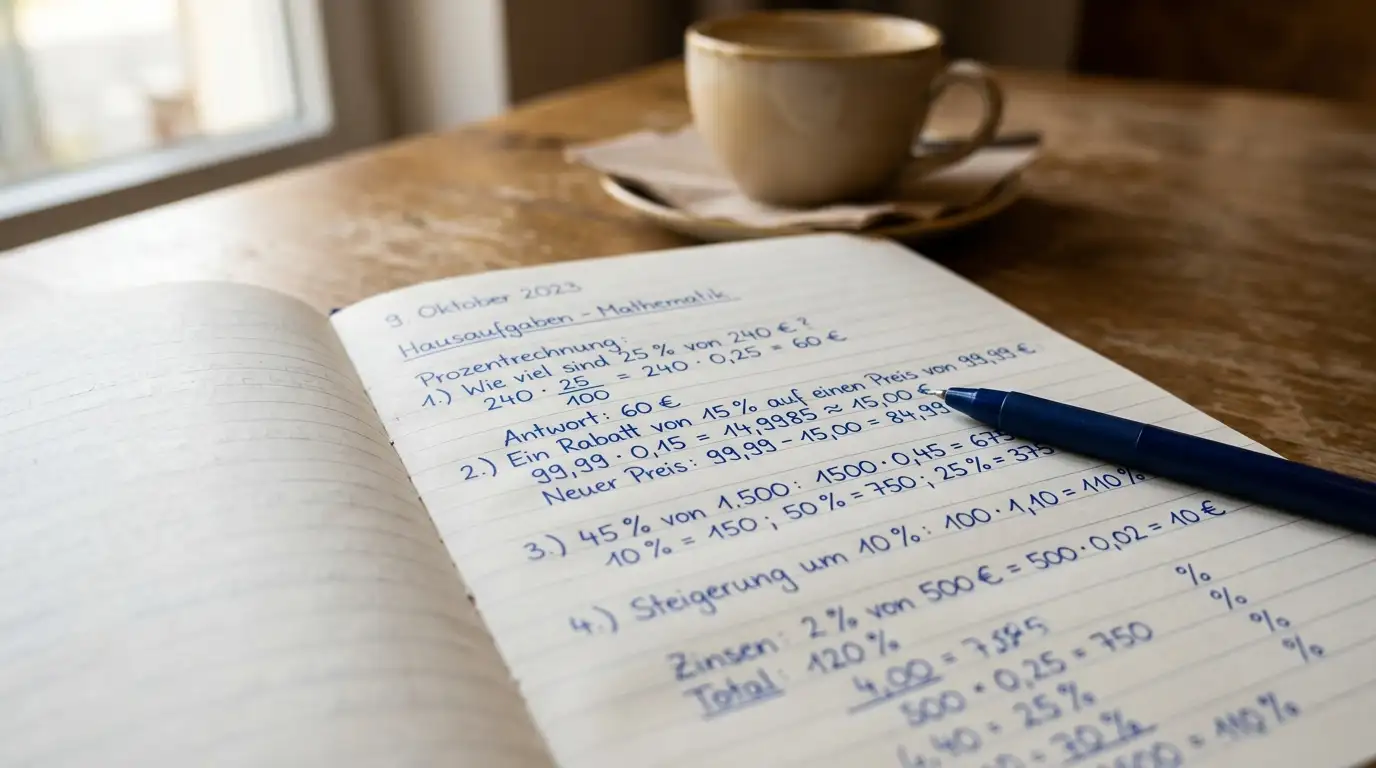 9. Oktober 2023
Hausaufgaben - Mathematik
Prozentrechnung:
1.) Wie viel sind 25 % von 240 € ?
240 · 25/100 = 240 · 0,25 = 60 €
Antwort: 60 €
2.) Ein Rabatt von 15 % auf einen Preis von 99,99 €
99,99 · 0,15 = 14,9985 ≈ 15,00 €
Neuer Preis: 99,99 - 15,00 = 84,99
3.) 45 % von 1.500 : 1500 · 0,45 = 675
10 % = 150 ; 50 % = 750 ; 25 % = 375
4.) Steigerung um 10 % : 100 · 1,10 = 110 %
Zinsen : 2 % von 500 € = 500 · 0,02 = 10 €
Total : 120 %
%
%
%
%
4,00 =
500 · 0,25 = 750
4,40 = 25 %
= 70 %
= 110 %